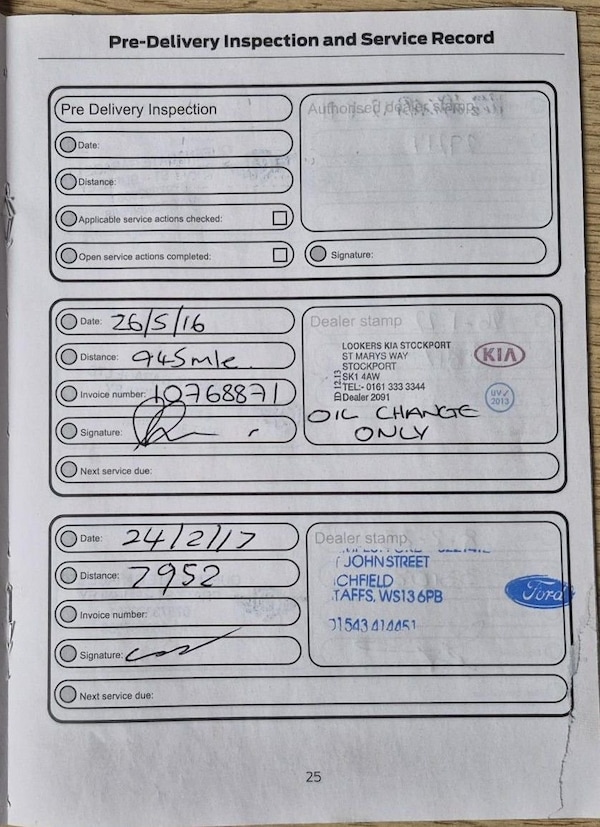 Pre-Delivery Inspection and Service Record
Pre Delivery Inspection
Authorised dealer stamp
Date:
Distance:
Applicable service actions checked:
Open service actions completed:
Signature:
Date: 26/5/16
Distance: 945mle
Invoice number: 10768871
Signature:
Next service due:
Dealer stamp
LOOKERS KIA STOCKPORT
ST MARYS WAY
STOCKPORT
SK1 4AW
TEL:- 0161 333 3344
Dealer 2091
12.13
KIA
UV✓
2013
OIL CHANGE
ONLY
Date: 24/2/17
Distance: 7952
Invoice number:
Signature:
Next service due:
Dealer stamp
JOHN STREET
ICHFIELD
TAFFS, WS13 6PB
01543 414451
Ford
25